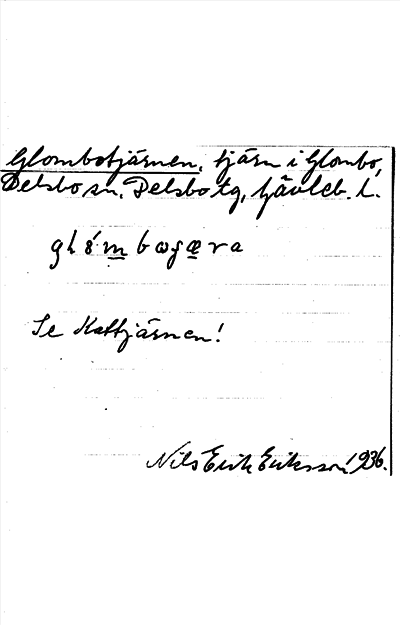 Glombotjärnen, tjärn i Glombo,
Delsbo sn, Delsbo tg, Gävleb. l.
Se Kattjärnen!
Nils Erik Eriksson 1936.